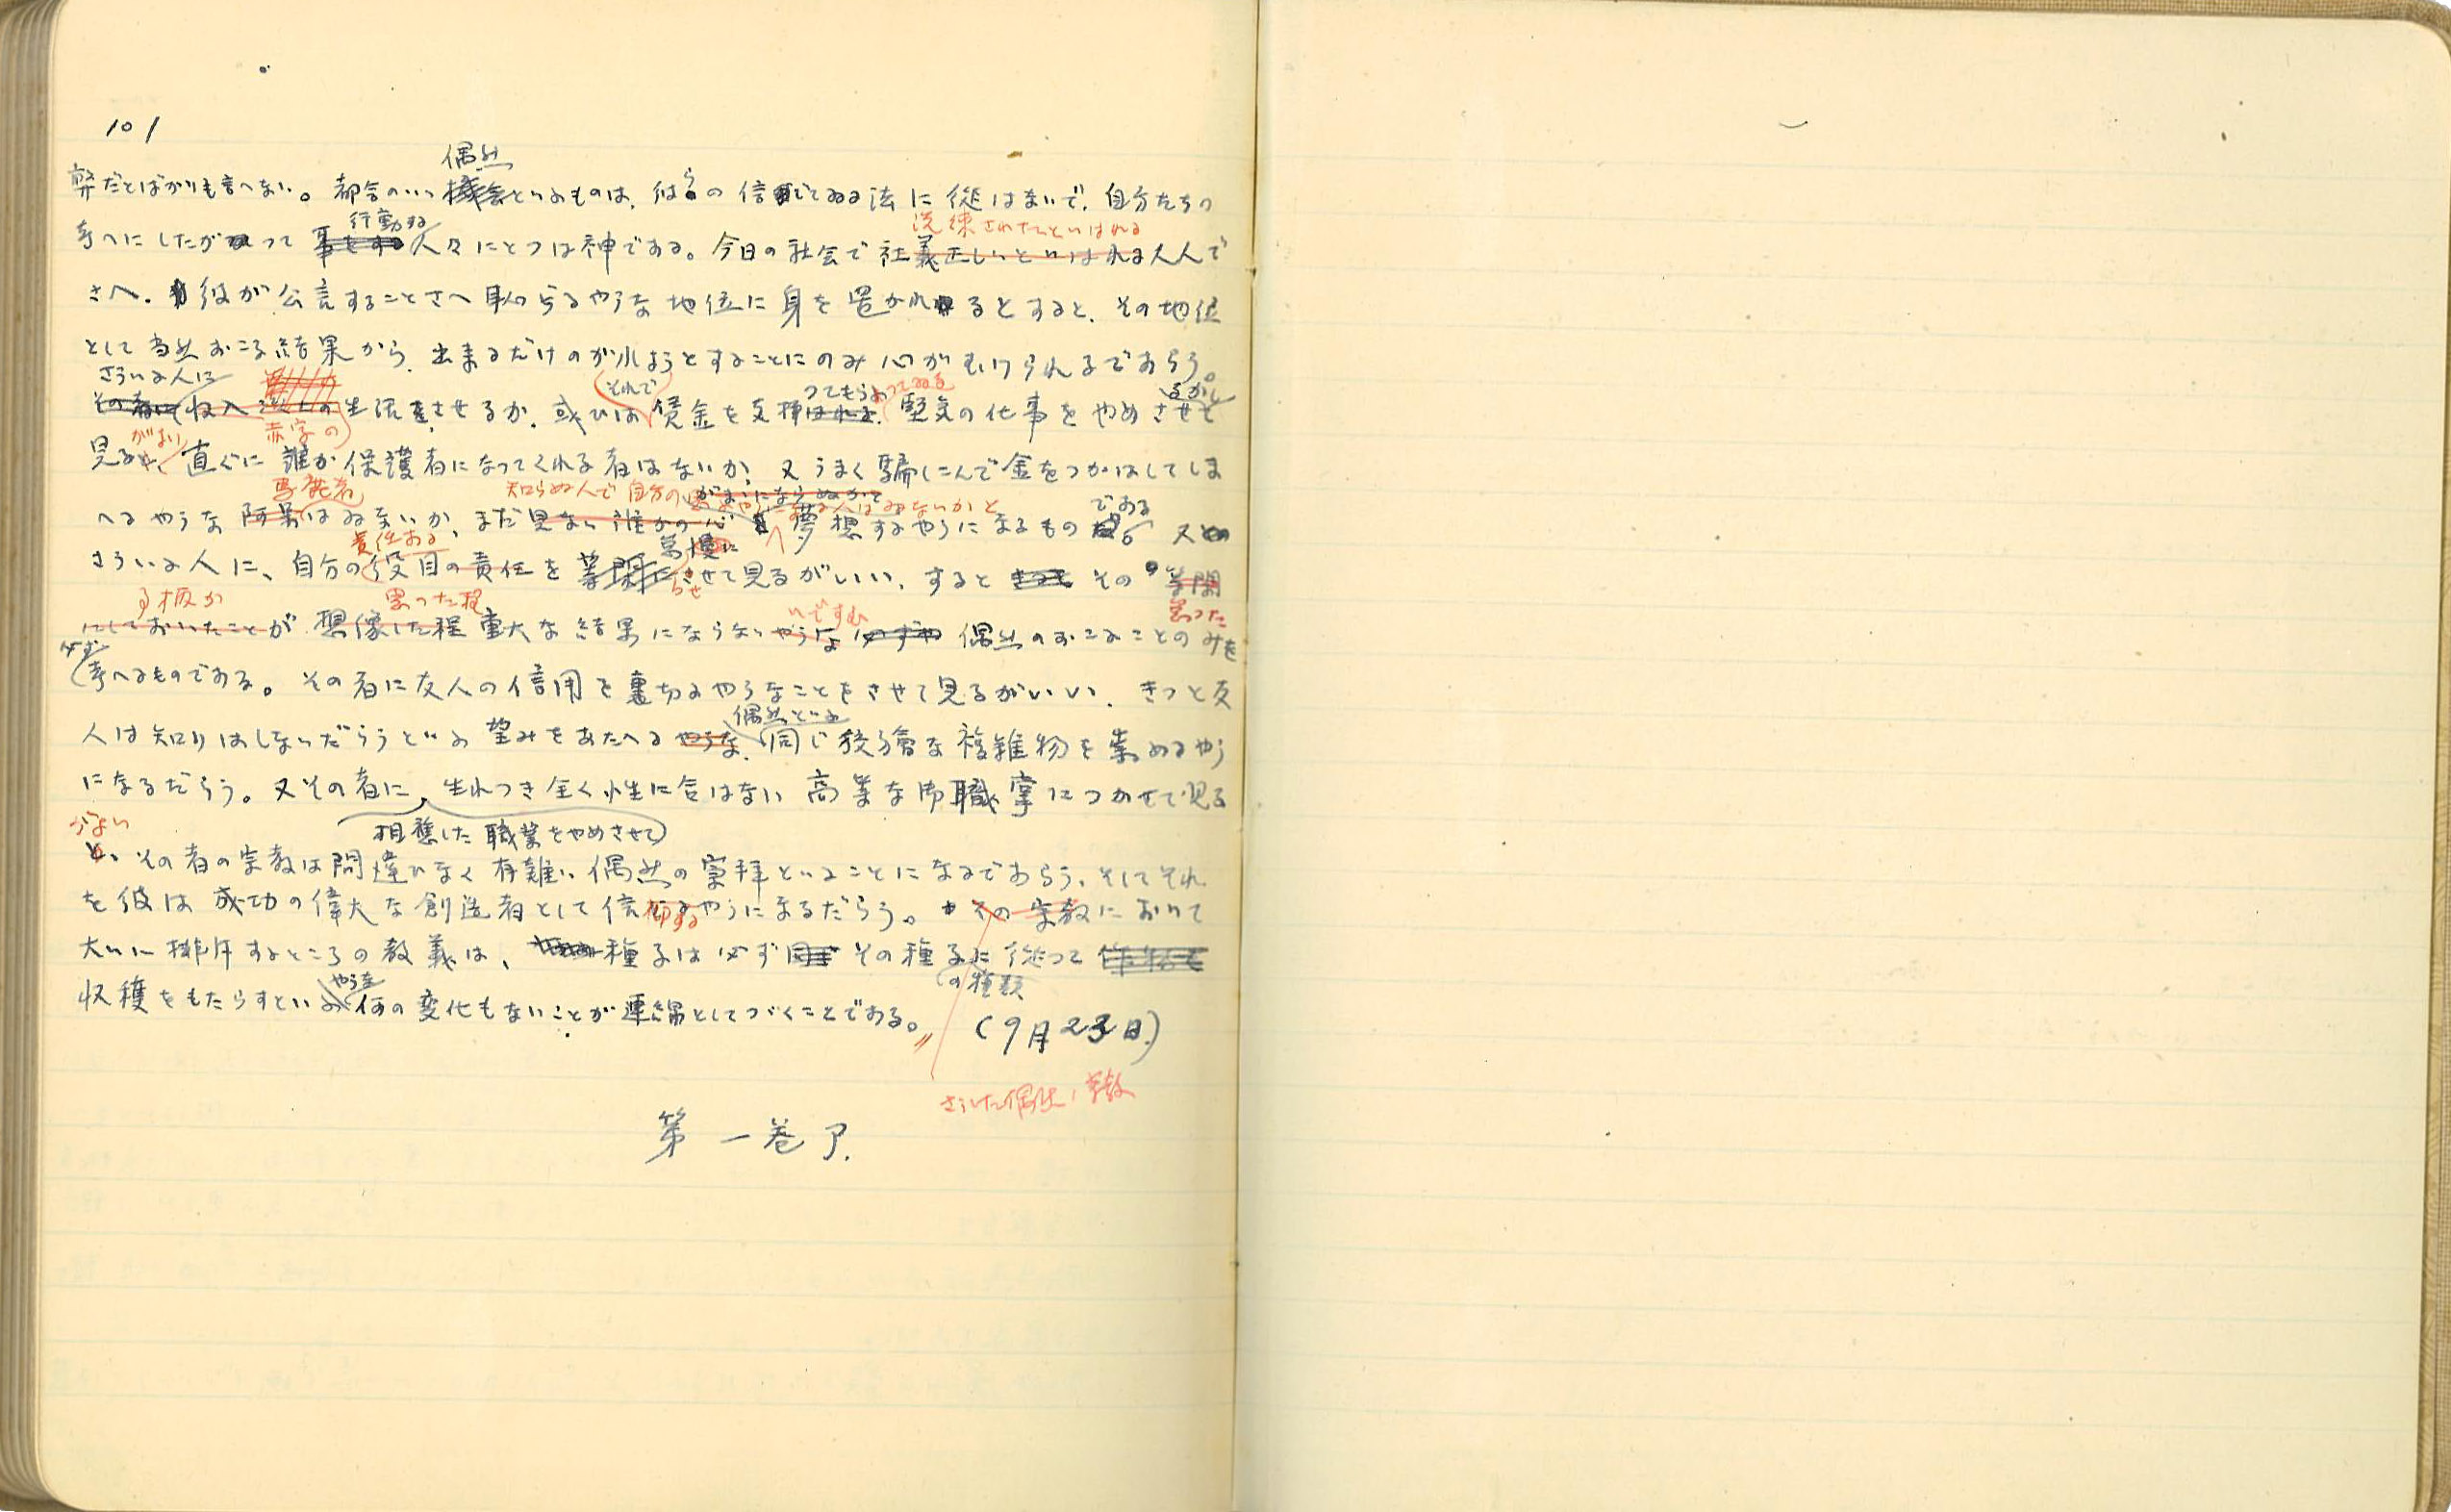 101
偶然
弊だとばかりも言へない。都合のいい機会といふものは、彼らの信じてゐる法に従はまいで、自分たちの
行動する
洗練されたといはれる
考へにしたがつて事をする人々にとつは神である。今日の社会で社義正しいといはれる大人で
さへ、彼が公言することさへ恥らるやうな地位に身を置かれるとすると、その地位
として当然おこる結果から、出来るだけのがれようとすることにのみ心がむけられるであらう。
さういふ人に
それで
つてもらよつてゐる
るがよい
その者に収入以上の生活をさせるか、或ひは賃金を支拂はれる堅気の仕事をやめさせて
がよい
赤字の
見ると、直ぐに誰か保護者になつてくれる者はないか、又うまく騙しこんで金をつかはしてしま
知らぬ人で自分の
である
へるやうな阿呆はゐまいか、まだ見ない誰かの心を夢想するやうになるもの 又
責任ある
怠慢に
らせ
さういふ人に、自分の役目の責任を等閑にさせて見るがいい、すると その等閑
思つた程
いですむ
怠つた
にしておいたことが想像した程重大な結果にならないやうな必ずや偶然のおこることのみを
必ず
考へるものである。その者に友人の信用を裏切るやうなことをさせて見るがいい、きつと友
偶然といふ
人は知りはしないだらうといふ望みをあたへるやうな、同じ狡猾な複雑物を崇めるやう
になるだらう。又その者に、生れつき全く性に合はない高等な御職掌につかせて見る
がよい
相應した職業をやめさせて
と、その者の宗教は間違ひなく有難い偶然の崇拝といふことになるであらう、そしてそれ
を彼は成功の偉大な創造者として信仰するやうになるだらう。その宗教において
大いに排斥するところの教義は、種子は必ずその種子に従つて
の種類
やうな
収穫をもたらすといふ何の変化もないことが連綿としてつづくことである。
(9月23日)
さういた偶然ノ宗教
第一巻了.